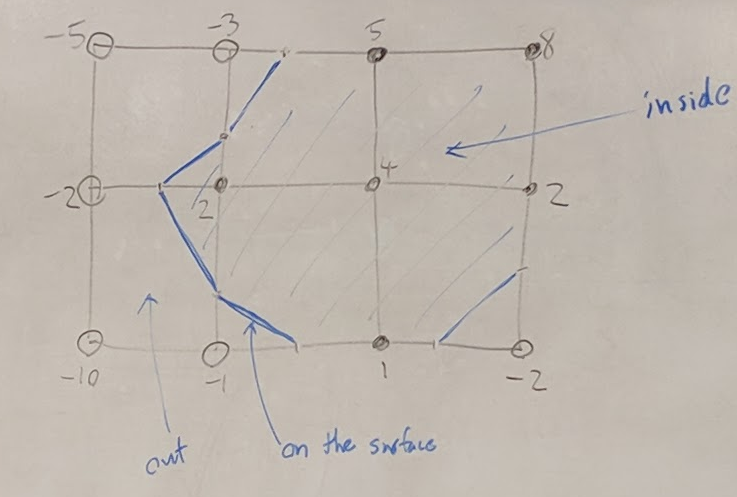 -5 -3 5 8
inside
-2 2 4 2
-10 -1 1 -2
out
on the surface